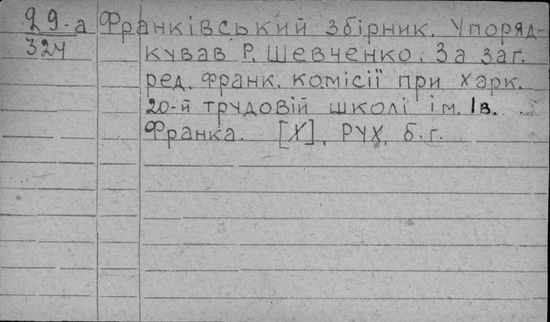 29-а Франківський збірник. Упоряд-
324 кував Р. Шевченко. За заг.
ред. франк. комісії при харк.
20-й трудовій школі ім. Ів.
Франка. [Х], РУХ, б.г.